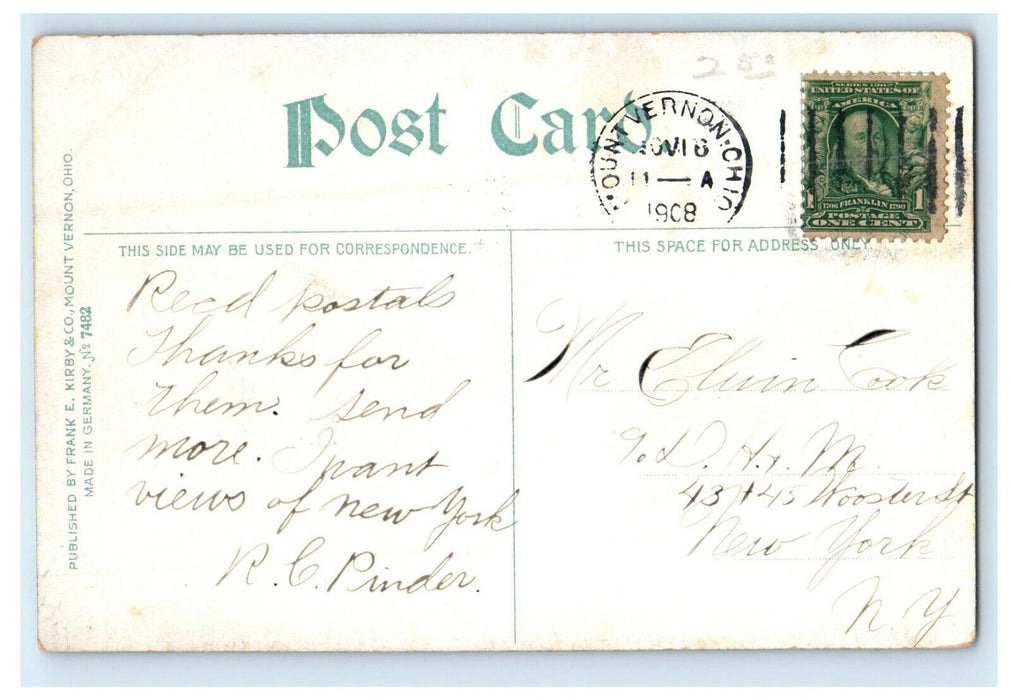 2 50
Post Card
MOUNT VERNON. OHIO
NOV 16
11 — A
1908
SERIES 1902
UNITED STATES OF
AMERICA
1 1706 FRANKLIN 1790 1
POSTAGE
ONE CENT
THIS SIDE MAY BE USED FOR CORRESPONDENCE.
THIS SPACE FOR ADDRESS ONLY.
PUBLISHED BY FRANK E. KIRBY & CO., MOUNT VERNON, OHIO.
MADE IN GERMANY. No 7482
Recd postals
Thanks for
them. send
more. I want
views of New York
R. C. Pinder.
Mr Elwin Cook
D. H. & M.
43 + 45 Wooster St
New York
N. Y.